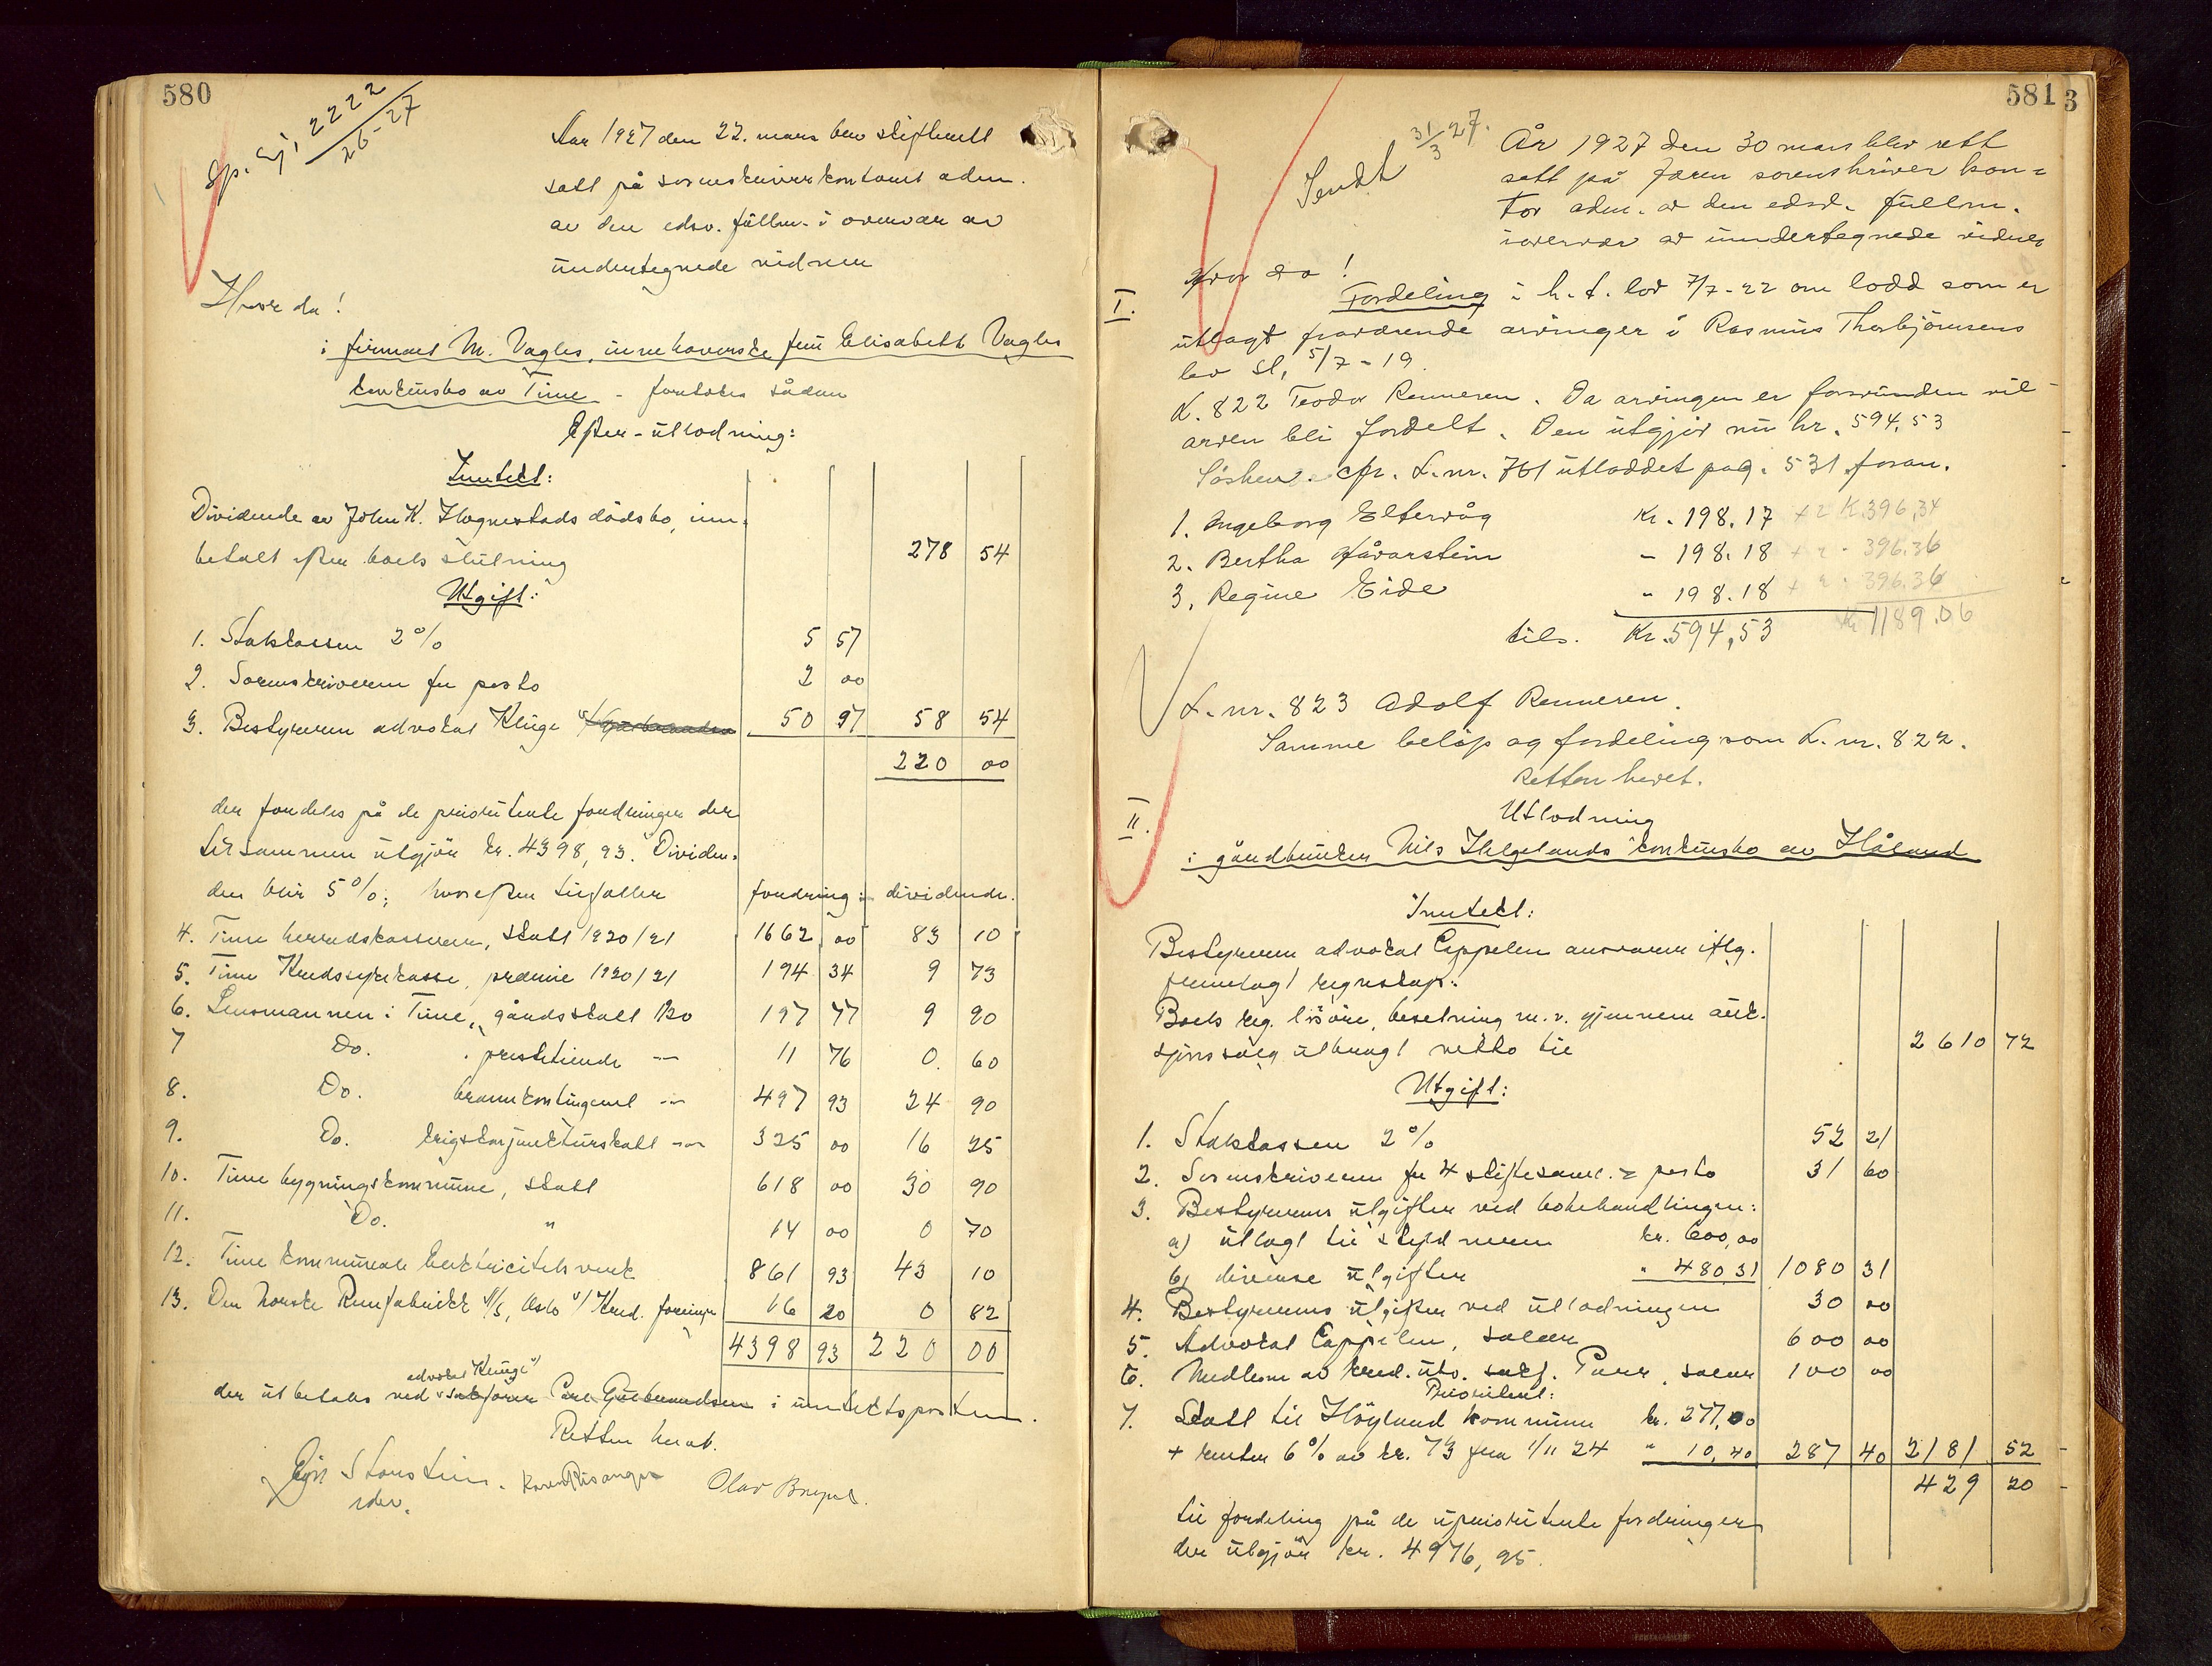 580
Sp. Sj. 2222
26-27
Aar 1927 den 22. mars blev skifterett
satt på sorenskriverkontoret adm.
av den edsv. fullm. i overvær av
undertegnede vidner
Hvor da!
i firmaet M. Vagles, innehaverske fru Elisabeth Vagles
konkursbo av Time - foretokes sådan
Efter-utlodning:
Inntekt:
Dividende av John K. Hognestads dödsbo, inn-
betalt efter boets slutning 278 54
Utgift:
1. Statskassen 2% 5 57
2. Sorenskriveren for porto 2 00
3. Bestyreren advokat Kluge 50 97 58 54
220 00
der fordeles på de prioriterte fordringer der
tilsammen utgjör kr. 4398,93. Dividen-
den blir 5%; hvorefter tilfaller fordring: dividende.
4. Time herredskasserer, skatt 1920/21 1662 00 83 10
5. Time Kredssykekasse, præmie 1920/21 194 34 9 73
6. Lensmannen i Time, gårdsskatt 1920 197 77 9 90
7 Do. prestetiende — 11 76 0. 60
8. Do. brannkontingent — 497 93 24 90
9. Do. krigskonjunkturskatt — 325 00 16 25
10. Time bygningskommune, skatt 618 00 30 90
11. Do. " 14 00 0 70
12. Time kommunale Elektricitetsverk 861 93 43 10
13. Den norske Remfabrikk A/S, Oslo v/ Kred. forening 16 20 0 82
4398 93 220 00
advokat Kluge v/
der utbetales ved sakförer Carl Gulbrandsen i inntektsposten.
Retten hevet.
Egil Storstein. Karen Risanger Olav Bryne.
edsv.
581 3
Sendt 31/3 27.
År 1927 den 30 mars blev rett
satt på Jæren sorenskriver kon-
tor adm. av den edsv. fullm.
i overvær av undertegnede vidner
Hvor da!
I. Fordeling i h.t. lov 7/7-22 om lodd som er
utlagt fraværende arvinger i Rasmus Thorbjörnsens
bo sl. 5/7-19.
L. 822 Teodor Renneren. Da arvingen er forsvunden vil
arven bli fordelt. Den utgjör nu kr. 594,53
Sösken. cfr. L.nr. 761 utloddet pag. 531 foran.
1. Ingeborg Eltervåg Kr. 198.17 + 2 K. 396,34
2. Bertha Håvarstein - 198.18 + 2 - 396.36
3. Regine Eide " 198.18 + 2 - 396.36
tils. Kr. 594,53 Kr 1189.06
L. nr. 823 Adolf Renneren.
Samme belöp og fordeling som L. nr. 822.
Retten hevet.
II. Utlodning
i gårdbruker Nils Helgelands konkursbo av Håland
Inntekt:
Bestyreren advokat Cappelen ansvarer iflg.
fremlagt regnskap:
Boets reg. lösöre, besetning m.v. gjennem auk-
sjonssalg utbragt netto til 2610 72
Utgift:
1. Statskassen 2% 52 21
2. Sorenskriveren for 4 skiftesaml. + porto 31 60
3. Bestyrerens utgifter ved bobehandlingen:
a) utlagt til skyldneren kr. 600,00
b) diverse utgifter " 480 31 1080 31
4. Bestyrerens utgifter ved utlodningen 30 00
5. Advokat Cappelen, salær 600 00
6. Medlem av kred. utv. sakf. Parr, salær 100 00
Prioritert:
7. Skatt til Höyland kommune kr. 277,00
+ renter 6% av kr. 73 fra 1/11 24 " 10,40 287 40 2181 52
429 20
til fordeling på de uprioriterte fordringer
der utgjör kr. 4976,95.